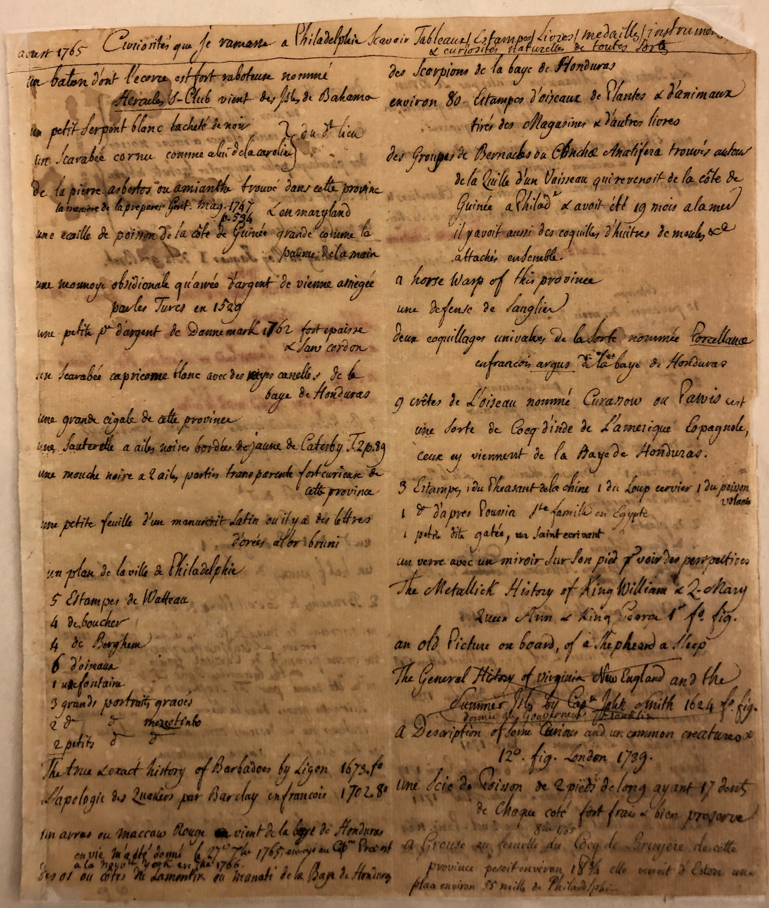 aoust 1765 Curiosités que je ramasse a Philadelphie Scavoir Tableaux/Estampes/Livres/medailles/instrumens
& curiosités naturelles de toutes sorte
un baton d'ont l'ecorce est fort raboteuse nommé
Hercules's-Club vient des Isles de Bahama
un petit Serpent blanc tacheté de noir
un Scarabée cornu comme celui de la caroline
du dt. lieu
de la pierre asbestos ou amianthe trouvé dans cette province
la maniere de la preparer Gent. Mag. 1747
p. 534 & en maryland
une ecaille de poisson de la côte de Guinée grande comme la
paume de la main
une monnoye obsidionale quarrée d'argent de vienne assiegée
par les Turcs en 1529
une petite pe. d'argent de Dannemark 1762 fort epaisse
& Sans cordon
un Scarabée capricorne blanc avec des rayes canelles de la
baye de Honduras
une grande cigale de cette province
une Sauterelle a ailes noires bordées de jaune de Catesby T. 2 p. 89
une mouche noire a 2 ailes parties transparente fort curieuse de
cette province
une petite feuille d'un manuscrit Latin ou il y a des lettres
d'orées a l'or bruni
un plan de la ville de Philadelphie
5 Estampes de Watteau
4 de boucher
4 de Berghem
6 d'oiseaux
1 une fontaine
3 grands portraits gravés
2 d° d° mezzotinto
2 petits d° d°
The true & exact history of Barbadoes by Ligon 1673. f°
L'apologie des Quakers par Barclay en francois 1702. 8°
un arras ou maccaw Rouge vient de la baye de Honduras
en vie m'a été donné le 27e. 7bre 1765, envoyé au Cape.
a la Nouve. York en 7bre 1766.
des os ou côtes du Lamentin ou manati de la Baye de Honduras
des Scorpions de la baye de Honduras
environ 80 Estampes d'oiseaux de Plantes & d'animaux
tirés des Magasines & d'autres livres
des Groupes de Bernacles ou Conchæ Anatifera trouvés autour
de la Quille d'un Vaisseau qui revenoit de la côte de
Guinée a Philade. & avoit été 19 mois a la mer
il y avoit aussi des coquilles d'huitres de moules &ca
attachés ensemble.
a horse Wasp of this province
une defense de Sanglier
deux coquillages univalves de la Sorte nommée Porcellanæ
en francois argus de la baye de Honduras
9 crêtes de L'oiseau nommé Curasow ou Pawis c'est
une Sorte de Cocq d'inde de L'amerique Espagnole,
ceux cy viennent de la Baye de Honduras.
3 Estampes 1 du Pheasant de la chine 1 du Loup cervier 1 du poisson
volant
1 d° d'apres Poussin Ste famille en Egypte
1 petite dite gatée, un Saint ecrivant
un verre avec un miroir Sur Son pied pr voir des perspectives
The Metallick History of King William & Q. Mary
Queen Ann & King George 1st f° fig.
an old Picture on board, of a Shepheard a Sleep
The General History of virginia New England and the
Summer Isles by Capn John Smith 1624 f° fig.
donnée du Gouverneur Franklin
a Description of Some Curious and uncommon creatures &
12°. fig. London 1739.
une Scie de Poisson de 2 pieds de long ayant 17 dents
de Chaque coté fort frais & bien preservé
a Grouse ou femelle du Cocq de Bruyere de cette
province pesoit environ elle venoit d'Eston une
place environ 55 mille de Philadelphie